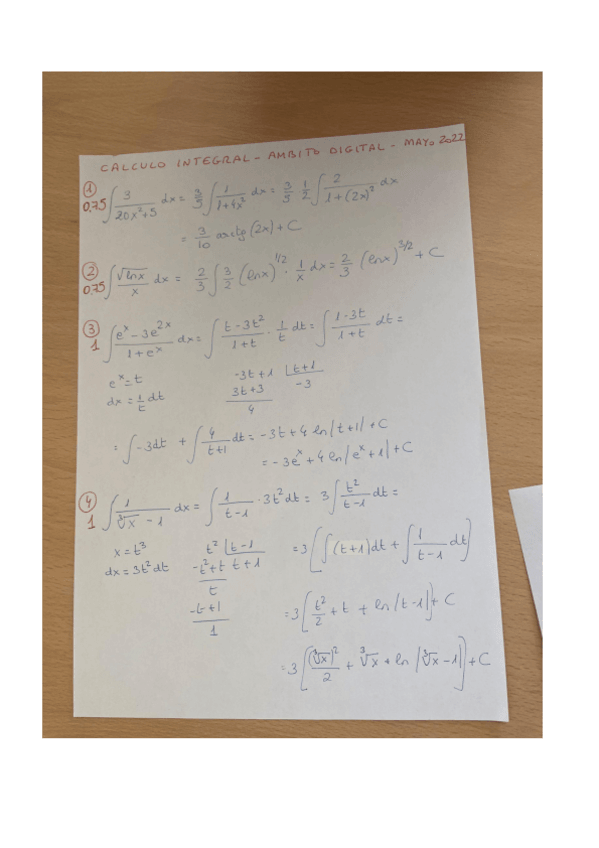 CALCULO INTEGRAL - AMBITO DIGITAL - MAYO 2022
① ∫ 3/(20x²+5) dx = 3/5 ∫ 1/(1+4x²) dx = 3/5 · 1/2 ∫ 2/(1+(2x)²) dx
0,75
= 3/10 arctg(2x) + C
② ∫ √(ln x)/x dx = 2/3 ∫ 3/2 (ln x)^(1/2) · 1/x dx = 2/3 (ln x)^(3/2) + C
0,75
③ ∫ (e^x - 3e^(2x))/(1+e^x) dx = ∫ (t-3t²)/(1+t) · 1/t dt = ∫ (1-3t)/(1+t) dt =
1
e^x = t    -3t+1 | t+1
dx = 1/t dt    3t+3    -3
4
= ∫ -3dt + ∫ 4/(t+1) dt = -3t + 4 ln|t+1| + C
= -3e^x + 4 ln|e^x+1| + C
④ ∫ 1/(∛x - 1) dx = ∫ 1/(t-1) · 3t² dt = 3 ∫ t²/(t-1) dt =
1
x = t³    t² | t-1    = 3[∫(t+1)dt + ∫ 1/(t-1) dt]
dx = 3t² dt    -t²+t    t+1
t
-t+1    = 3[t²/2 + t + ln|t-1|] + C
1
= 3[(∛x)²/2 + ∛x + ln|∛x - 1|] + C